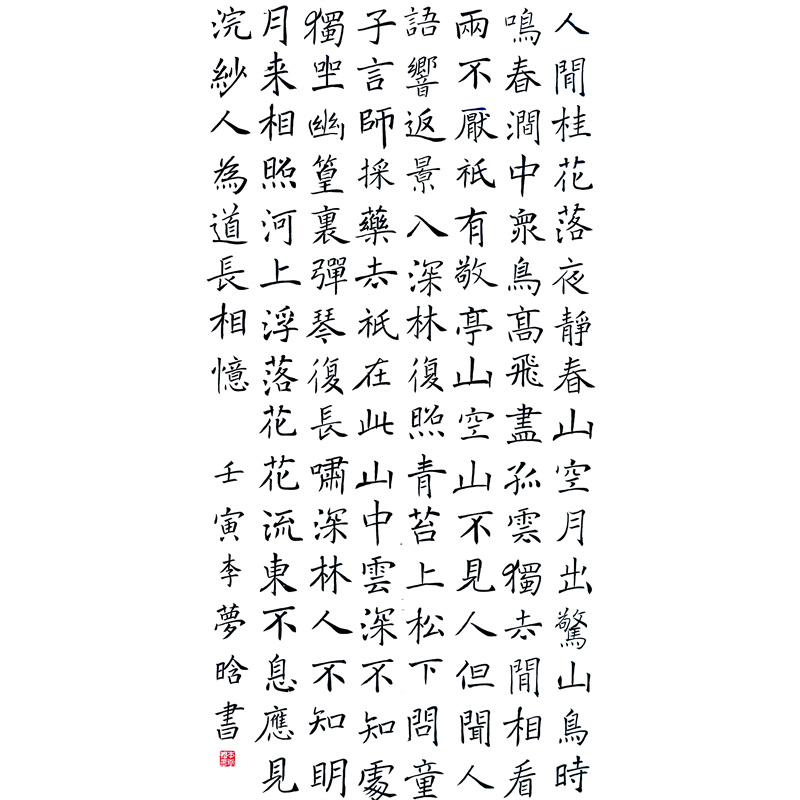 人閒桂花落夜靜春山空月出驚山鳥時
鳴春澗中衆鳥髙飛盡孤雲獨去閒相看
兩不厭祇有敬亭山空山不見人但聞人
語響返景入深林復照青苔上松下問童
子言師採藥去祇在此山中雲深不知處
獨坐幽篁裏彈琴復長嘯深林人不知明
月来相照河上浮落花花流東不息應見
浣紗人為道長相憶 壬寅李夢晗書